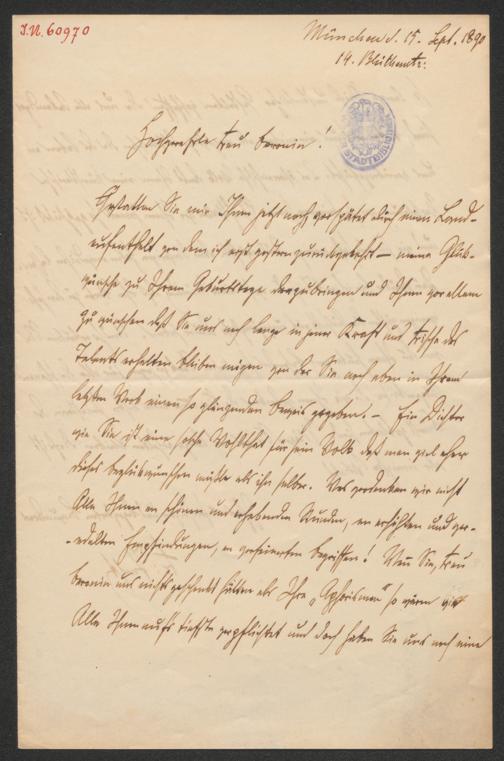 J.N. 60970
München d. 15. Sept. 1890
14. Blüthenstr:
Hochverehrte Frau Baronin!
Gestatten Sie mir Ihnen jetzt noch, verspätet durch einen Land-
aufenthalt von dem ich erst gestern zurückgekehrt – meine Glück-
wünsche zu Ihrem Geburtstage darzubringen und Ihnen vor allem
zu wünschen daß Sie uns noch lange in jener Kraft und Frische des
Talents erhalten bleiben mögen von der Sie noch eben in Ihrem
letzten Werk einen so glänzenden Beweis gegeben. – Ein Dichter
wie Sie ist eine solche Wohlthat für sein Volk daß man viel eher
dieses beglückwünschen müßte als ihn selber. Was verdanken wir nicht
Alle Ihnen an schönen und erhebenden Stunden, an erhöhten und ver-
-edelten Empfindungen, an verfeinerten Begriffen! Wenn Sie, Frau
Baronin uns nichts geschenkt hätten als Ihre „Aphorismen" so wären wir
Alle Ihnen aufs tiefste verpflichtet und doch haben Sie uns noch eine